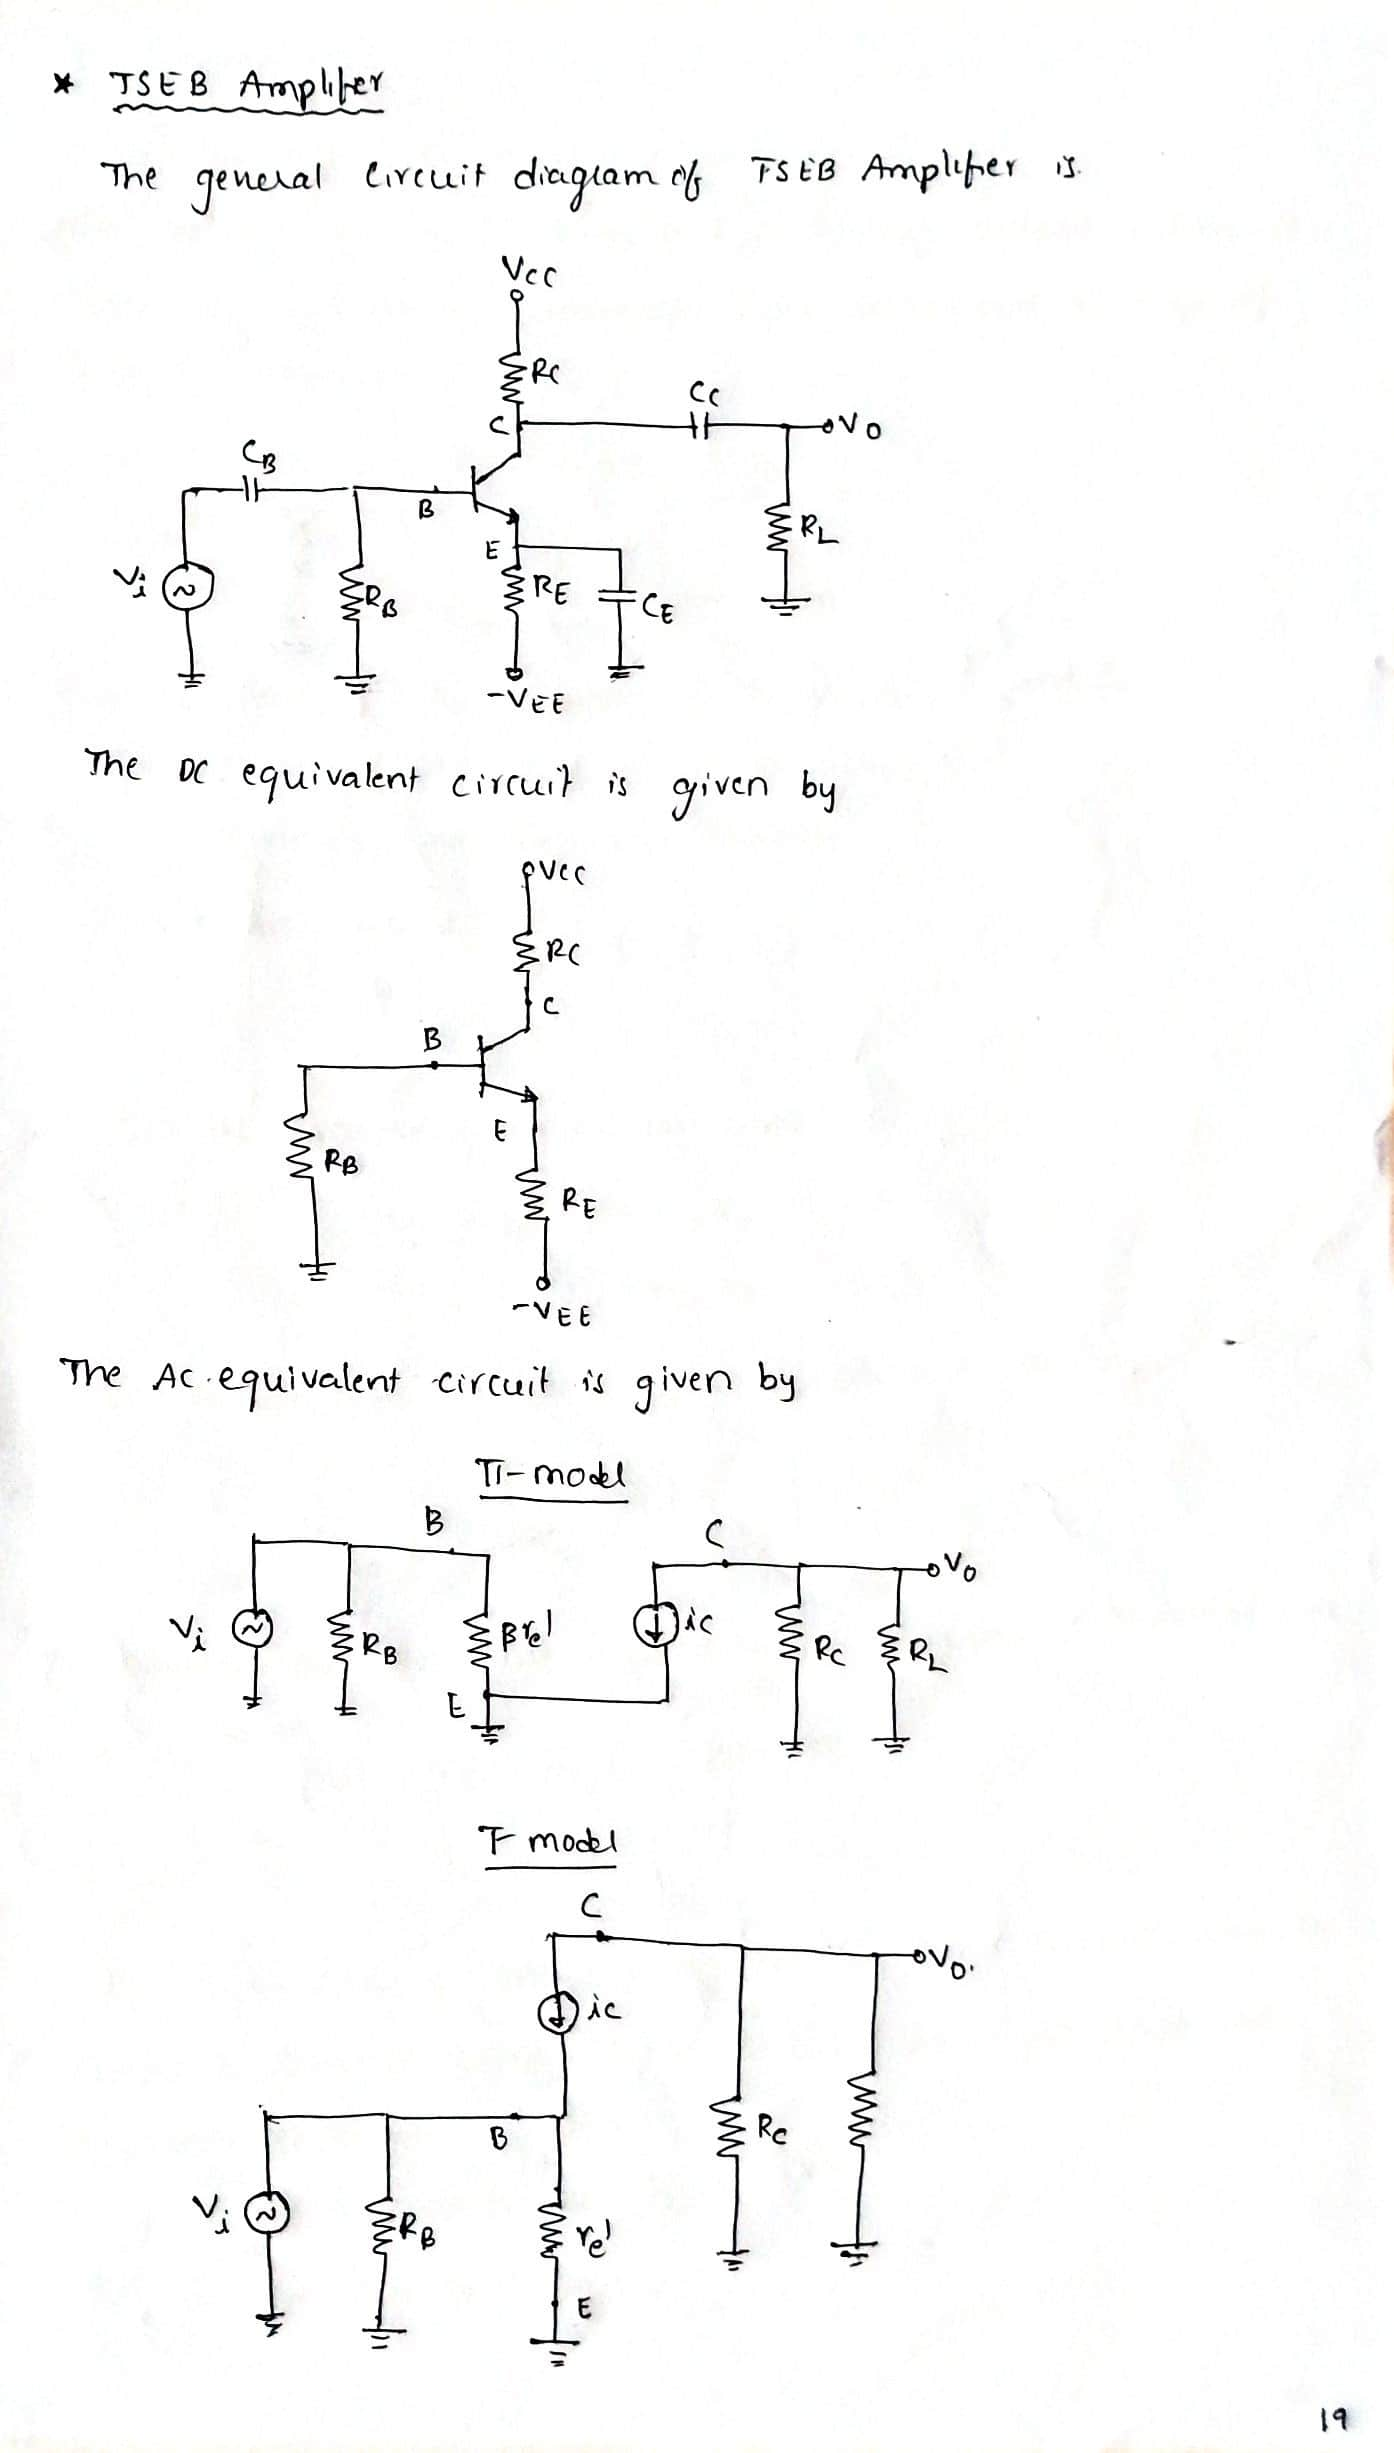 * TSEB Amplifier
The general Circuit diagram of TSEB Amplifier is.
VCC
RC
CC
C
VO
CB
B
RL
E
Vi
RB
RE
CE
-VEE
The DC equivalent circuit is given by
VCC
RC
C
B
E
RB
RE
-VEE
The AC equivalent circuit is given by
π-model
B
C
VO
Vi
RB
βre'
ic
RC
RL
E
T model
C
VO.
ic
B
RC
Vi
RB
re'
E
19